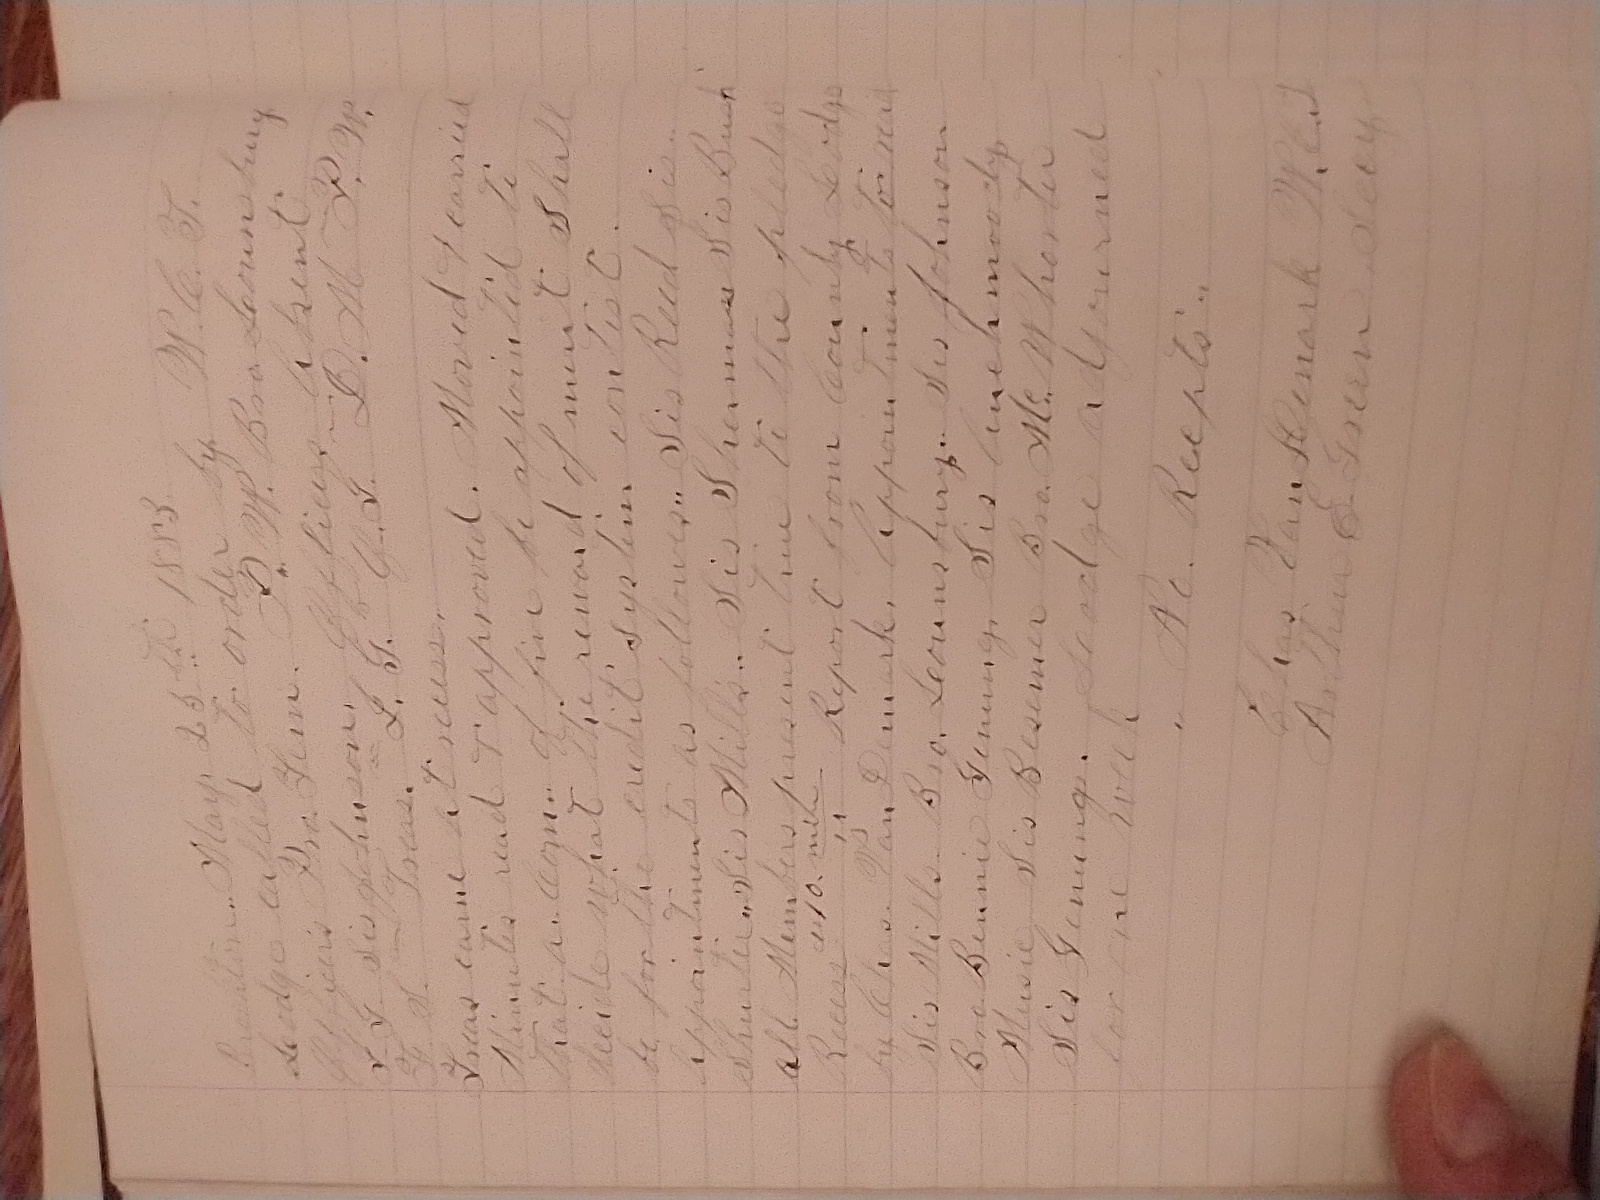 Brookton.. May. 25th 1883.
Loodge called to order by W. C. T.
Officers Pro. Tem. P. W. Bro Lounsbury
I G Sis Johnson. Officers Absent
F. S. Treas. I. G. O. G. D. M P. W.
Treas came at recess.
Minutes read & approved. Moved & carried
that a. Com.. of five be appointed to
decide what the reward of merit Shall
be for the credit System contest.
Appointments as followes.. Sis Reed Sis..
Shurter.. Sis Mills.. Sis Sherman Sis Bush
all Members present true to the pledge
Recess 10. min Report from County Lodge
by Chas. Van Demark. Appointments to read
Sis Mills. Bro. Lounsbury.. Sis Johnson
Bro Bennie Genung. Sis Auchmoody
Music Sis Besemer Bro. Mc. Whorter
Sis Genung. Loodge adjourned
for one week
" No. Recepts"
Chas Van Demark W. C. T
Arthur E Green Secy